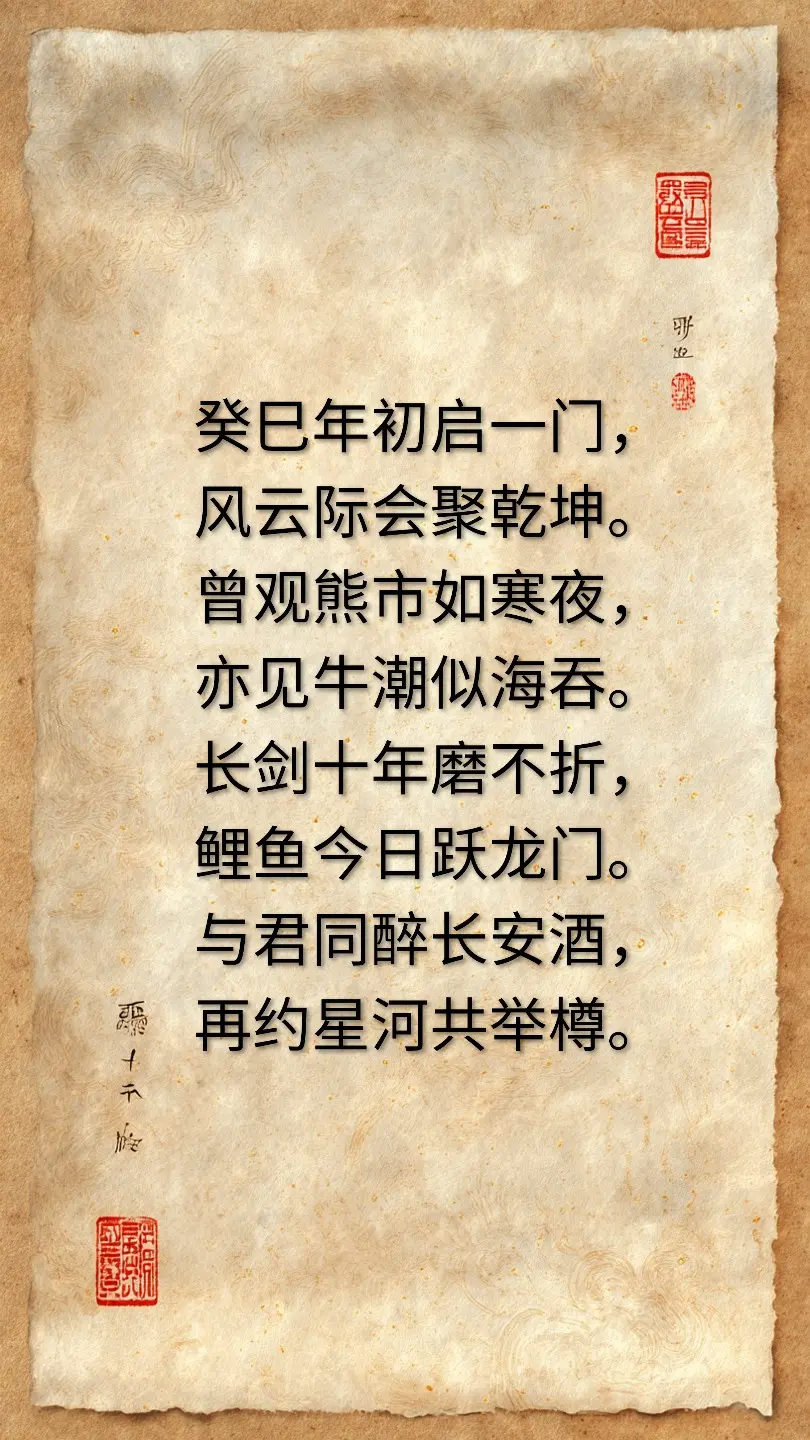 癸巳年初启一门，
风云际会聚乾坤。
曾观熊市如寒夜，
亦见牛潮似海吞。
长剑十年磨不折，
鲤鱼今日跃龙门。
与君同醉长安酒，
再约星河共举樽。